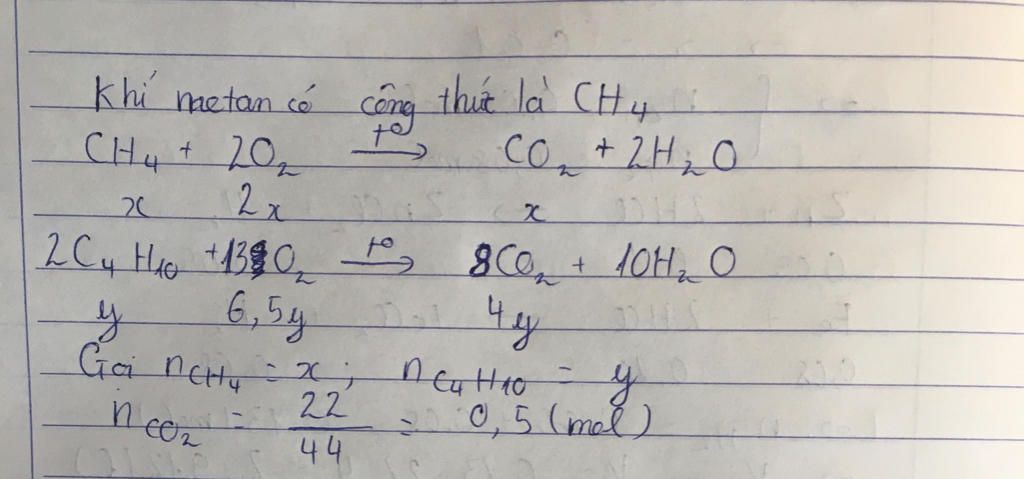 Khí metan có công thức là CH₄
CH₄ + 2O₂ →(t°) CO₂ + 2H₂O
x 2x x
2C₄H₁₀ + 13O₂ →(t°) 8CO₂ + 10H₂O
y 6,5y 4y
Gọi nCH₄ = x ; nC₄H₁₀ = y
nCO₂ = 22/44 = 0,5 (mol)